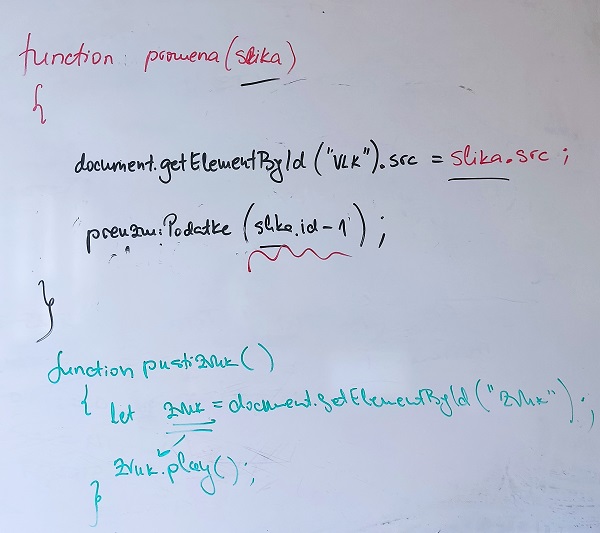 function promena(slika)
{
document.getElementById("VLK").src = slika.src;
preuzmiPodatke(slika.id-1);
}
function pustiZvuk()
{ let zvuk = document.getElementById("zvuk");
zvuk.play();
}